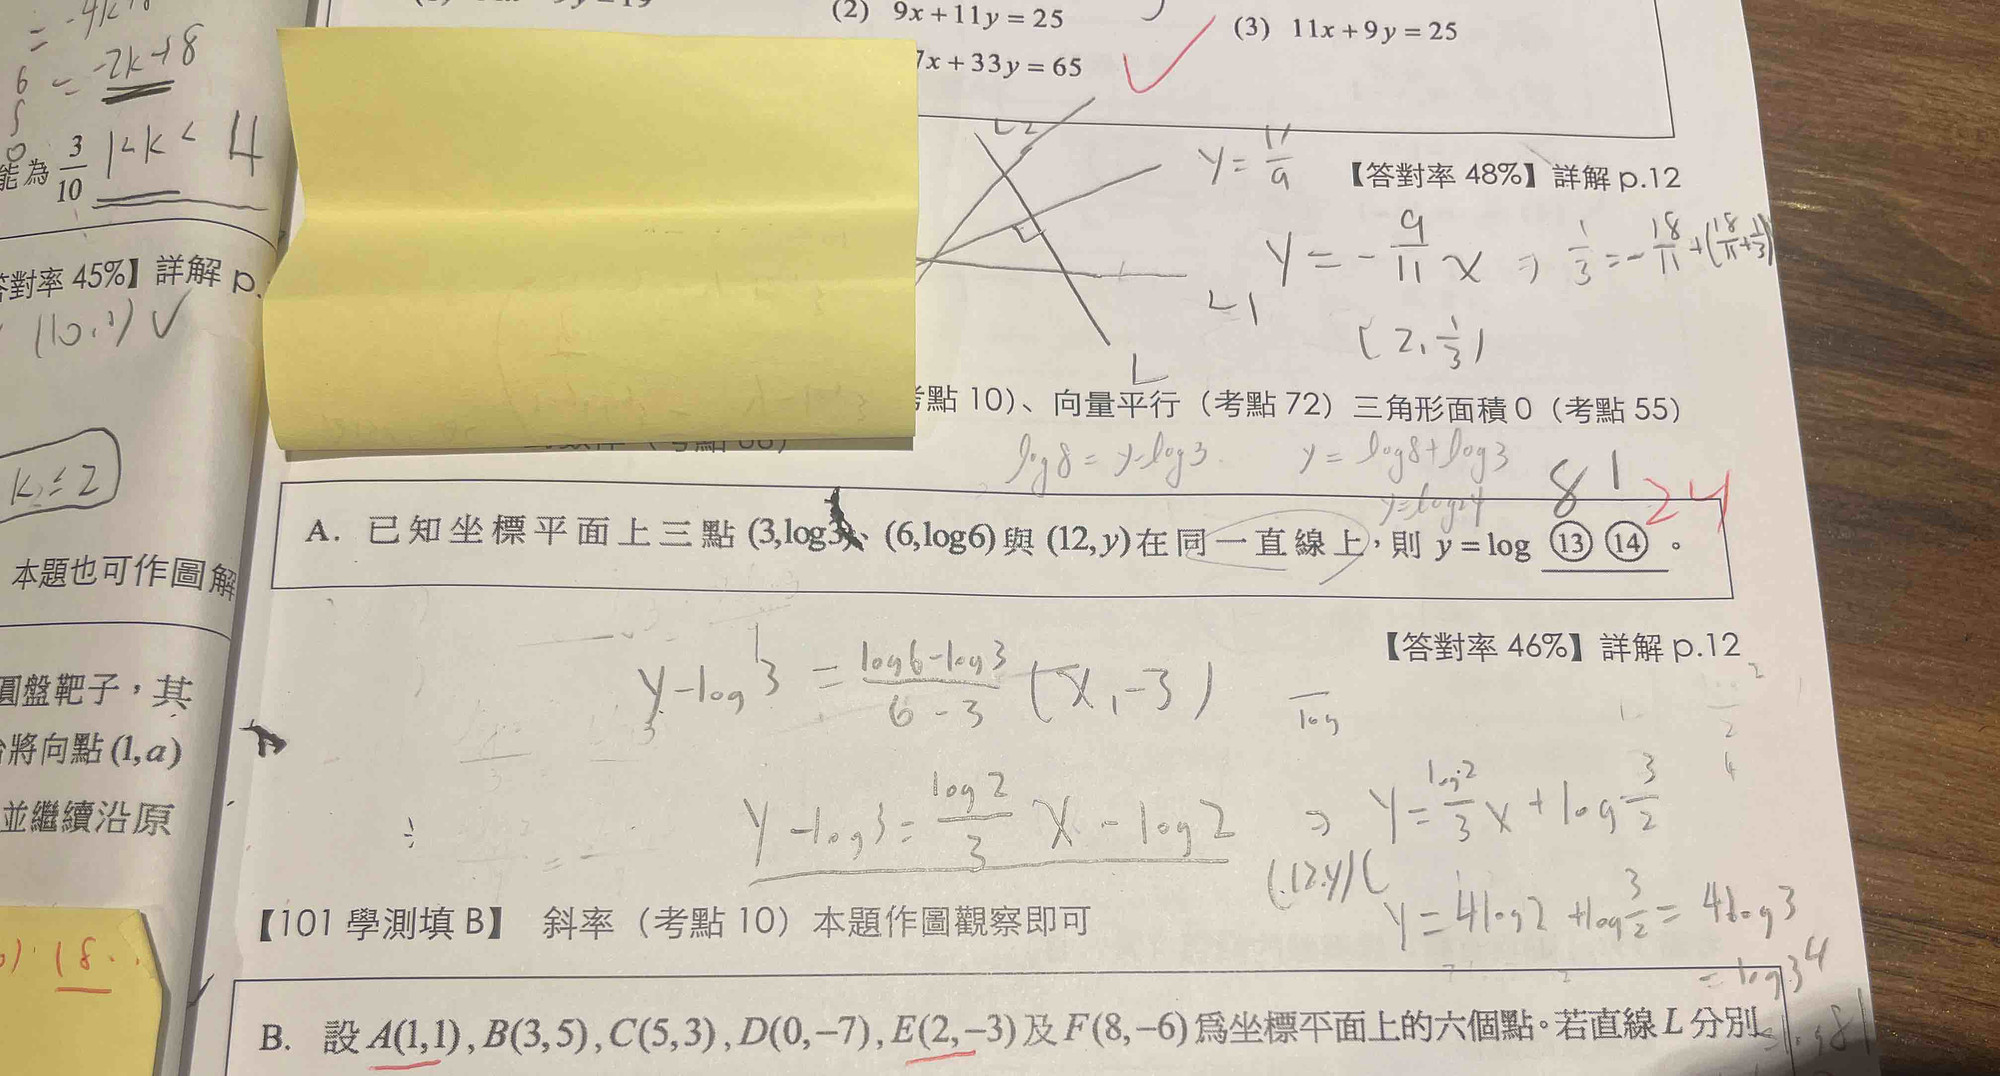 = -4k+8
(2) 9x+11y=25
(3) 11x+9y=25
= -2k+8
7x+33y=65
能為 3/10
1<k<4
L2
y=11/9
【答對率 48%】詳解 p.12
y=-9/11 x ⇒ 1/3=-18/11+(18/11+1/3)
答對率 45%】詳解 p.
(10,1) ✓
L1
(2,1/3)
L
點 10)、向量平行(考點 72)三角形面積 0(考點 55)
log8=y-log3 y=log8+log3
y=log24
k≤2
81
24
A. 已知坐標平面上三點 (3,log3)、(6,log6)與 (12,y)在同一直線上,則 y=log ⑬⑭。
本題也可作圖解
【答對率 46%】詳解 p.12
y-log3 = (log6-log3)/(6-3) (x,-3)
log
圓盤靶子,其
將向點(1,a)
並繼續沿原
y-log3=log2/3 x-log2 ⇒ y=log2/3 x+log3/2
(12,y)
y=4log2+log3/2=4log3
=log3^4
【101 學測填 B】 斜率(考點 10)本題作圖觀察即可
18
B. 設 A(1,1),B(3,5),C(5,3),D(0,−7),E(2,−3)及 F(8,−6)為坐標平面上的六個點。若直線 L 分別